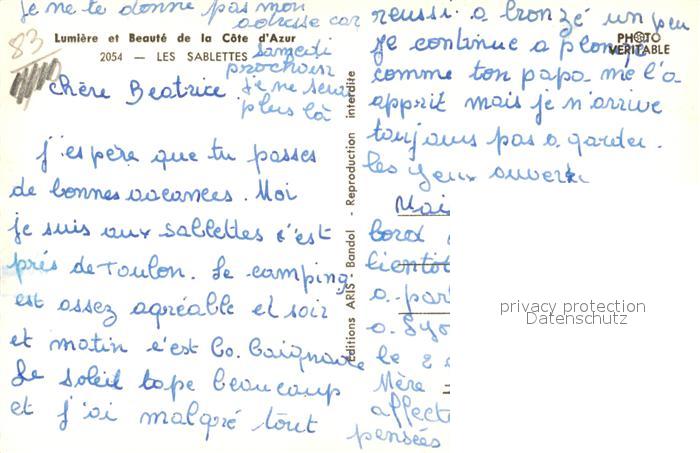 je ne te donne pas mon
adresse car
samedi
prochain
je ne serai
plus là
83
Lumière et Beauté de la Côte d'Azur
2054 — LES SABLETTES
chère Beatrice
j'espère que tu passes
de bonnes vacances. Moi
je suis aux Sablettes c'est
près de Toulon. Le camping
est assez agréable et soir
et matin c'est la baignade
Le soleil tape beaucoup
et j'ai malgré tout
Editions ARIS - Bandol - Reproduction interdite
PHOTO
VERITABLE
reussi a bronzé un peu
je continue a plonger
comme ton papa me l'a
apprit mais je n'arrive
toujours pas a garder
les yeux ouverts
bientôt
a par
a Lyo
le 2
Mère
affect
pensées
privacy protection
Datenschutz